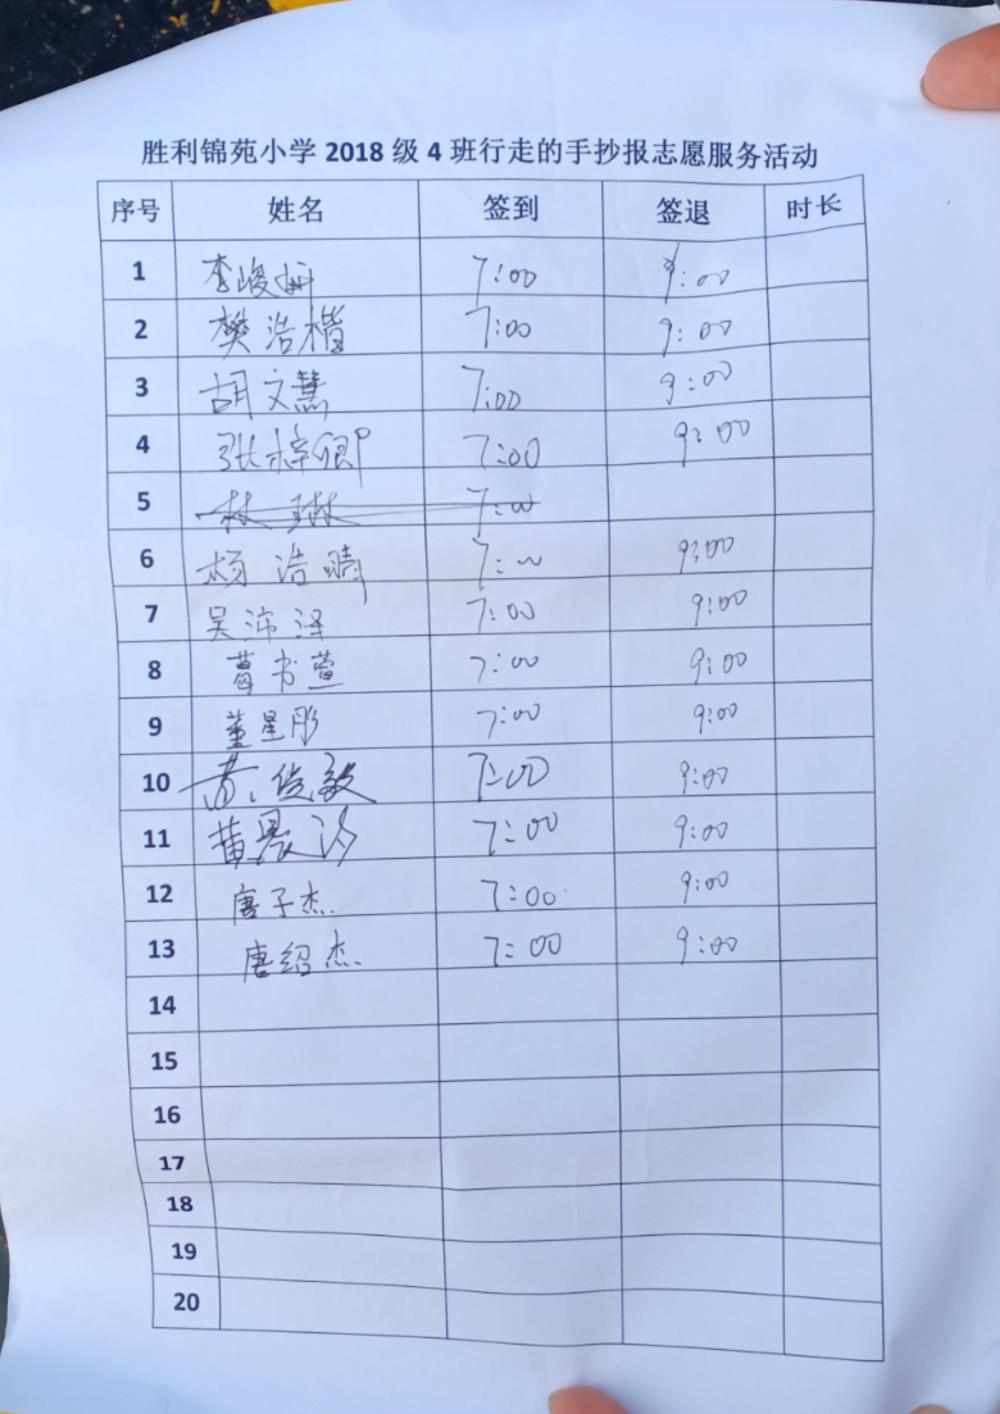 胜利锦苑小学 2018 级 4 班行走的手抄报志愿服务活动
序号 姓名 签到 签退 时长
1 李峻姗 7:00 9:00
2 樊浩楷 7:00 9:00
3 胡文慧 7:00 9:00
4 张梓卿 7:00 9:00
5 林琳 7:00
6 杨浩晴 7:00 9:00
7 吴沛泽 7:00 9:00
8 葛书萱 7:00 9:00
9 董星彤 7:00 9:00
10 俊毅 7:00 9:00
11 黄晨汐 7:00 9:00
12 唐子杰 7:00 9:00
13 唐绍杰 7:00 9:00
14
15
16
17
18
19
20